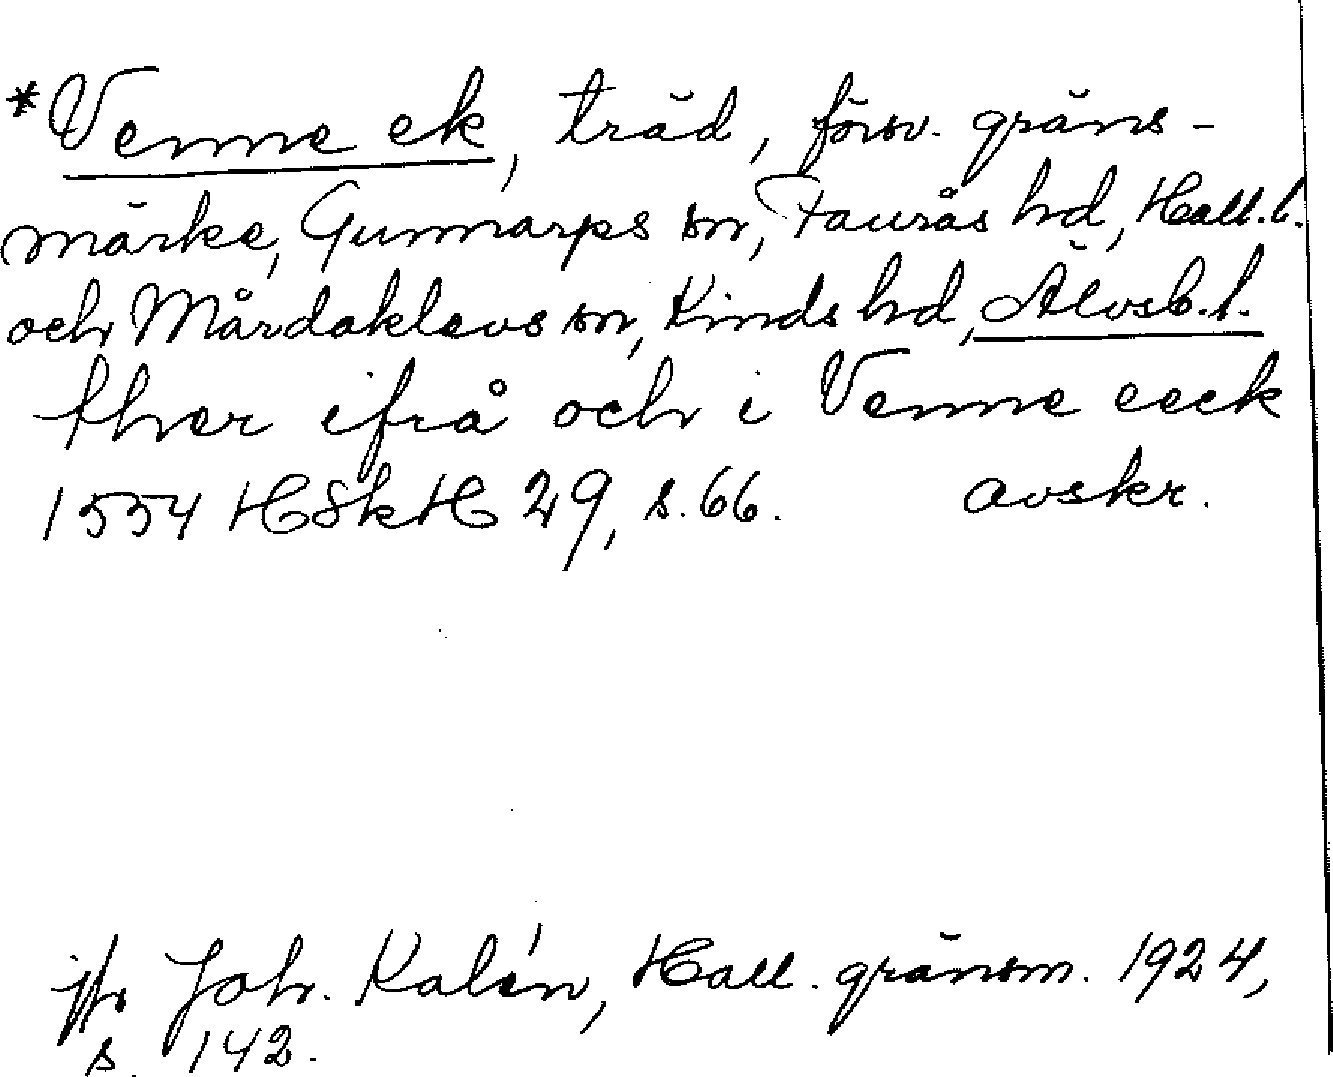 *Venne ek, träd, försv. gräns-
märke, Gunnarps sn, Faurås hd, Hall.l.
och Mårdaklevs sn, Kinds hd, Älvsb.l.
ther ifrå och i Venne eeck
1554 HSkH 29, s. 66. avskr.
jfr Joh. Kalén, Hall. gränsm. 1924,
s. 142.